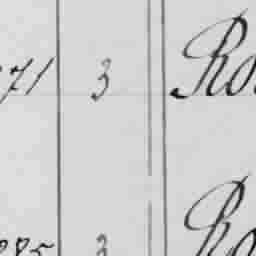 71 3 Ro
285 3 Ro